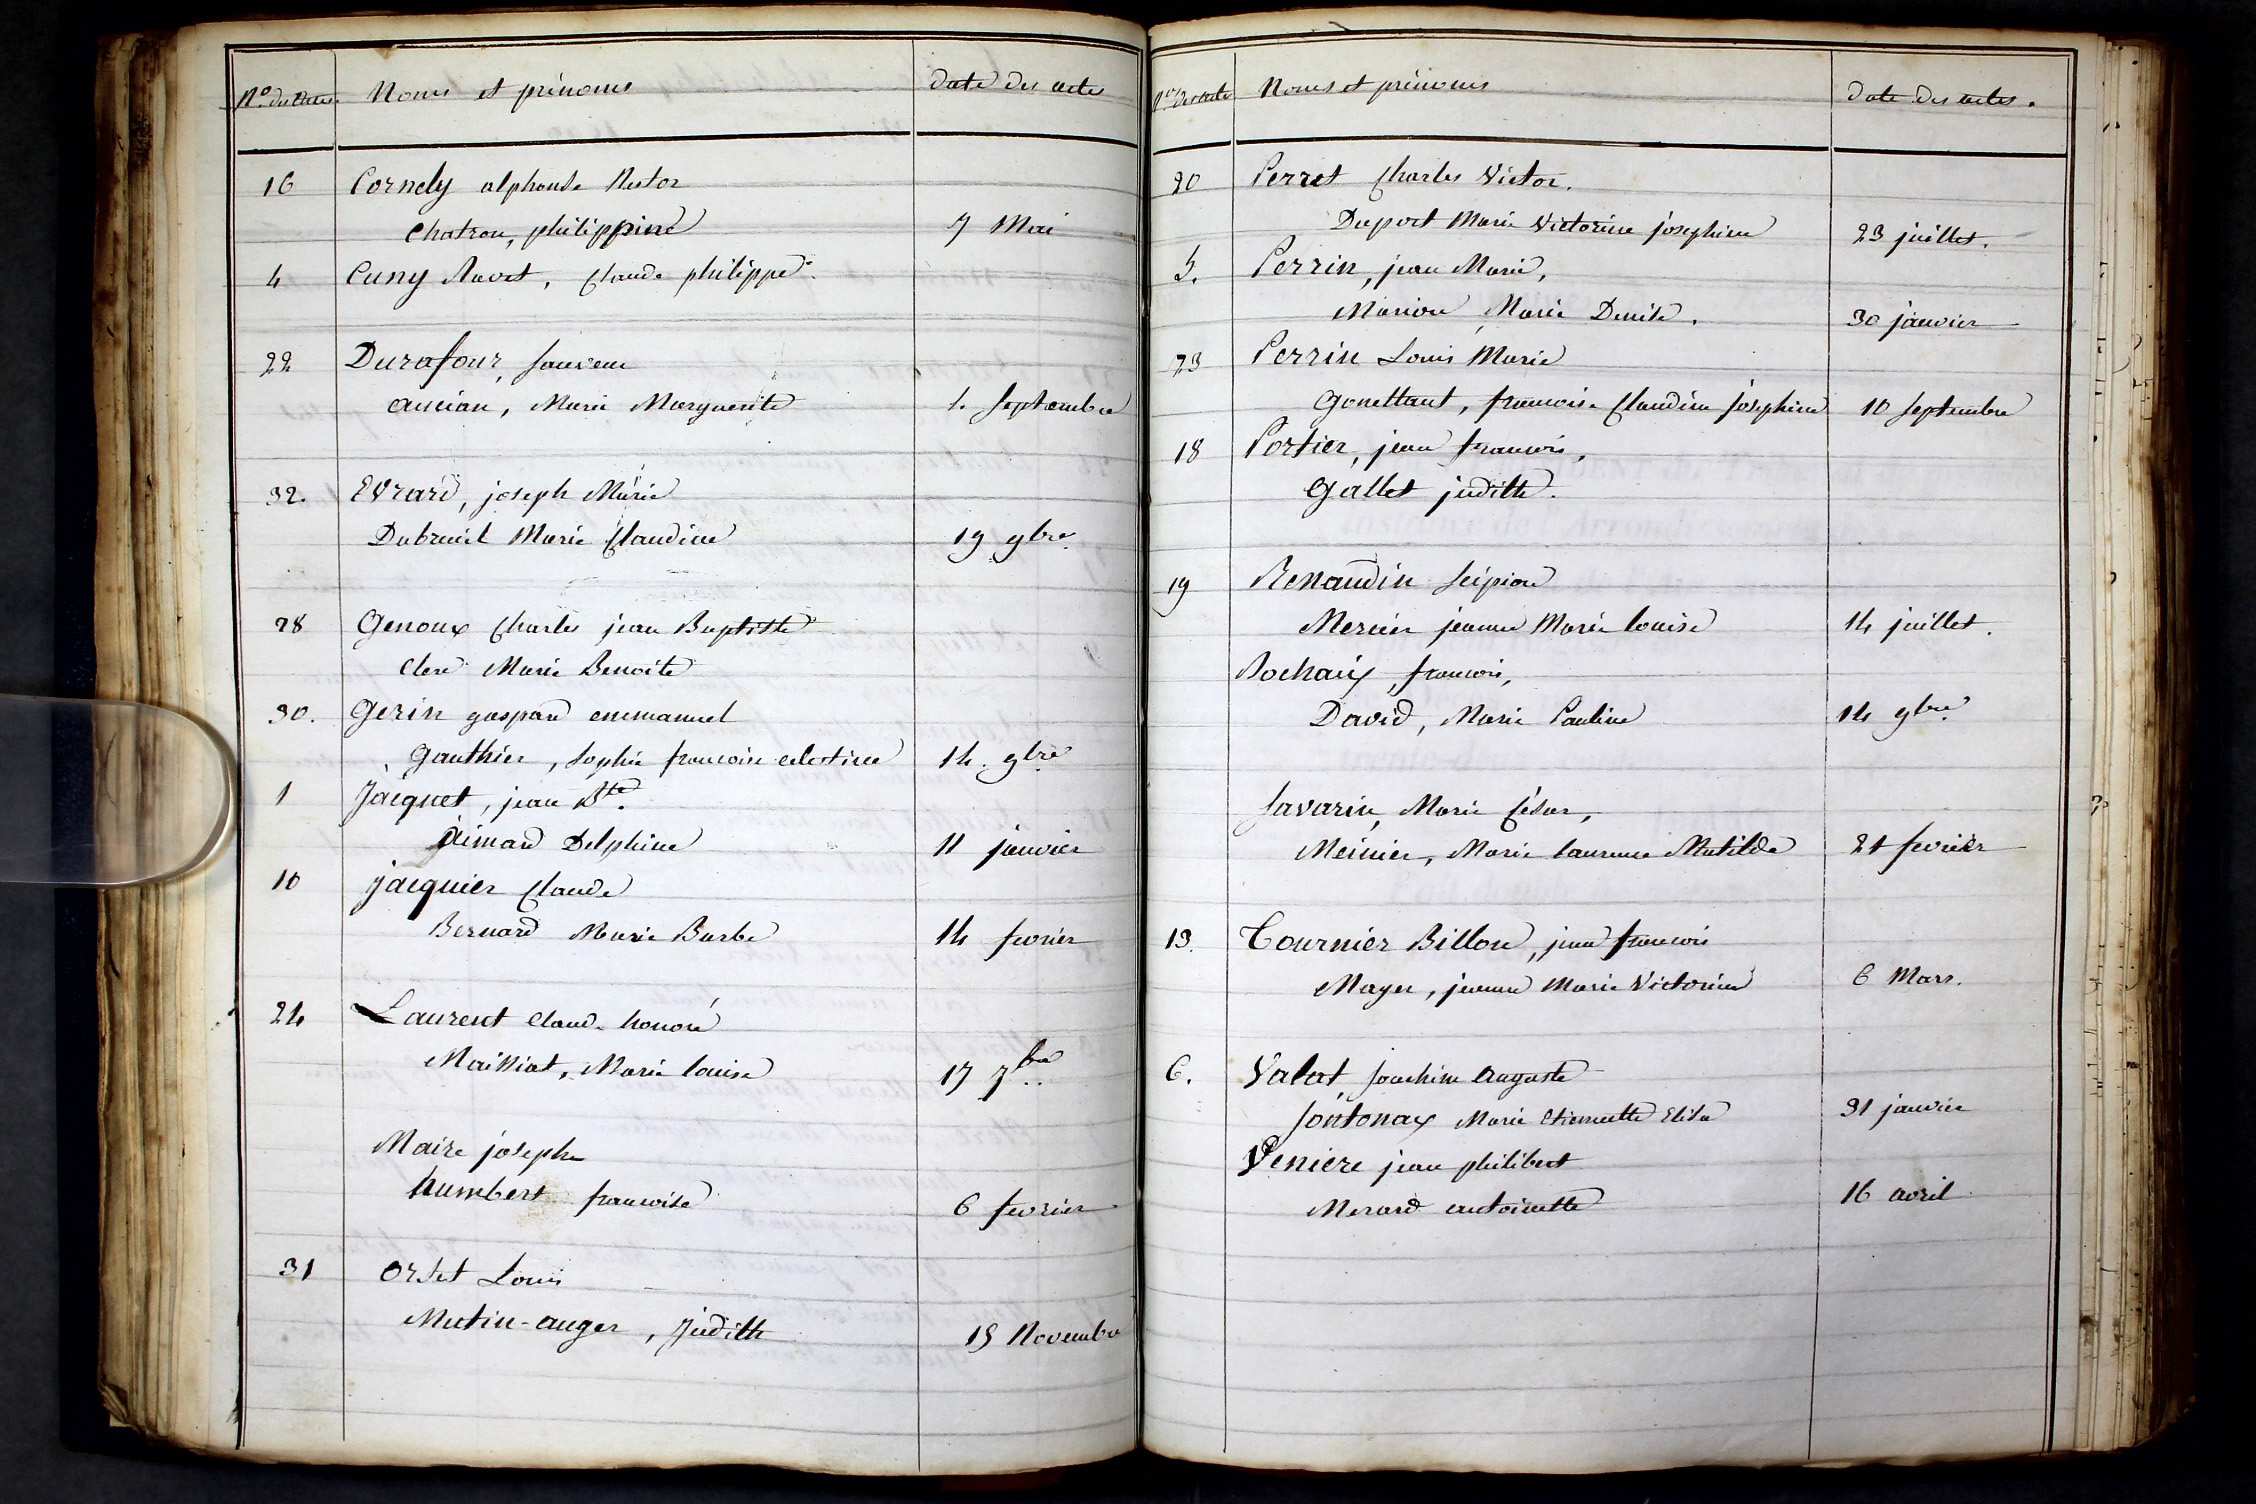 Nos des actes. Noms et prénoms date des actes
16 Cornely alphonse Nestor
Chatron, philippine 7 Mai
4 Cuny Ravet, Claude philippe
22 Durafour, Sauveur
ancian, Marie Marguerite 1. Septembre
32. Evrard, joseph Marie
Dubreuil Marie Claudine 19 9bre
28 Genoux Charles jean Baptiste
Clerc Marie Benoite
30. Gerin gaspard emmanuel
Gauthier, Sophie francoise celestine 14. 9bre
1 Jacquet, jean Bte.
aimard Delphine 11 janvier
10 jacquier Claude
Bernard Marie Barbe 14 fevrier
24 Laurent Claude honoré
Mailliat, Marie louise 17 7bre
Maire joseph
humbert francoise 6 fevrier
31 Orset Louis
Mutin-auger, Judith 15 Novembre
Nos des acte Noms et prénoms date des actes.
20 Perret Charles Victor.
Duport Marie Victorine joséphine 23 juillet.
5. Perrin, jean Marie,
Marion Marie Denise. 30 janvier
23 Perrin Louis Marie
Gonettant, francoise Claudine joséphine 10 Septembre
18 Portier, jean francois,
Gallet judith.
19 Renaudin Scipion
Mercier jeanne Marie louise 14 juillet.
Rochaix, francois,
David, Marie Pauline 14 9bre
Savarin, Marie César,
Meinier, Marie laurence Matilde 21 fevrier
13. Tournier Billon, jean francois
Mayer, jeanne Marie Victorine 6 Mars.
6. Valat Joachim auguste
Jontonax Marie Etiennette Elisa 31 janvier
Veniere jean philibert
Morard antoinette 16 avril